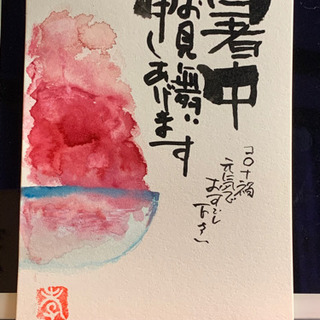 暑中
お見舞い
申しあげます
コロナ禍
元気で
おすごし
下さい